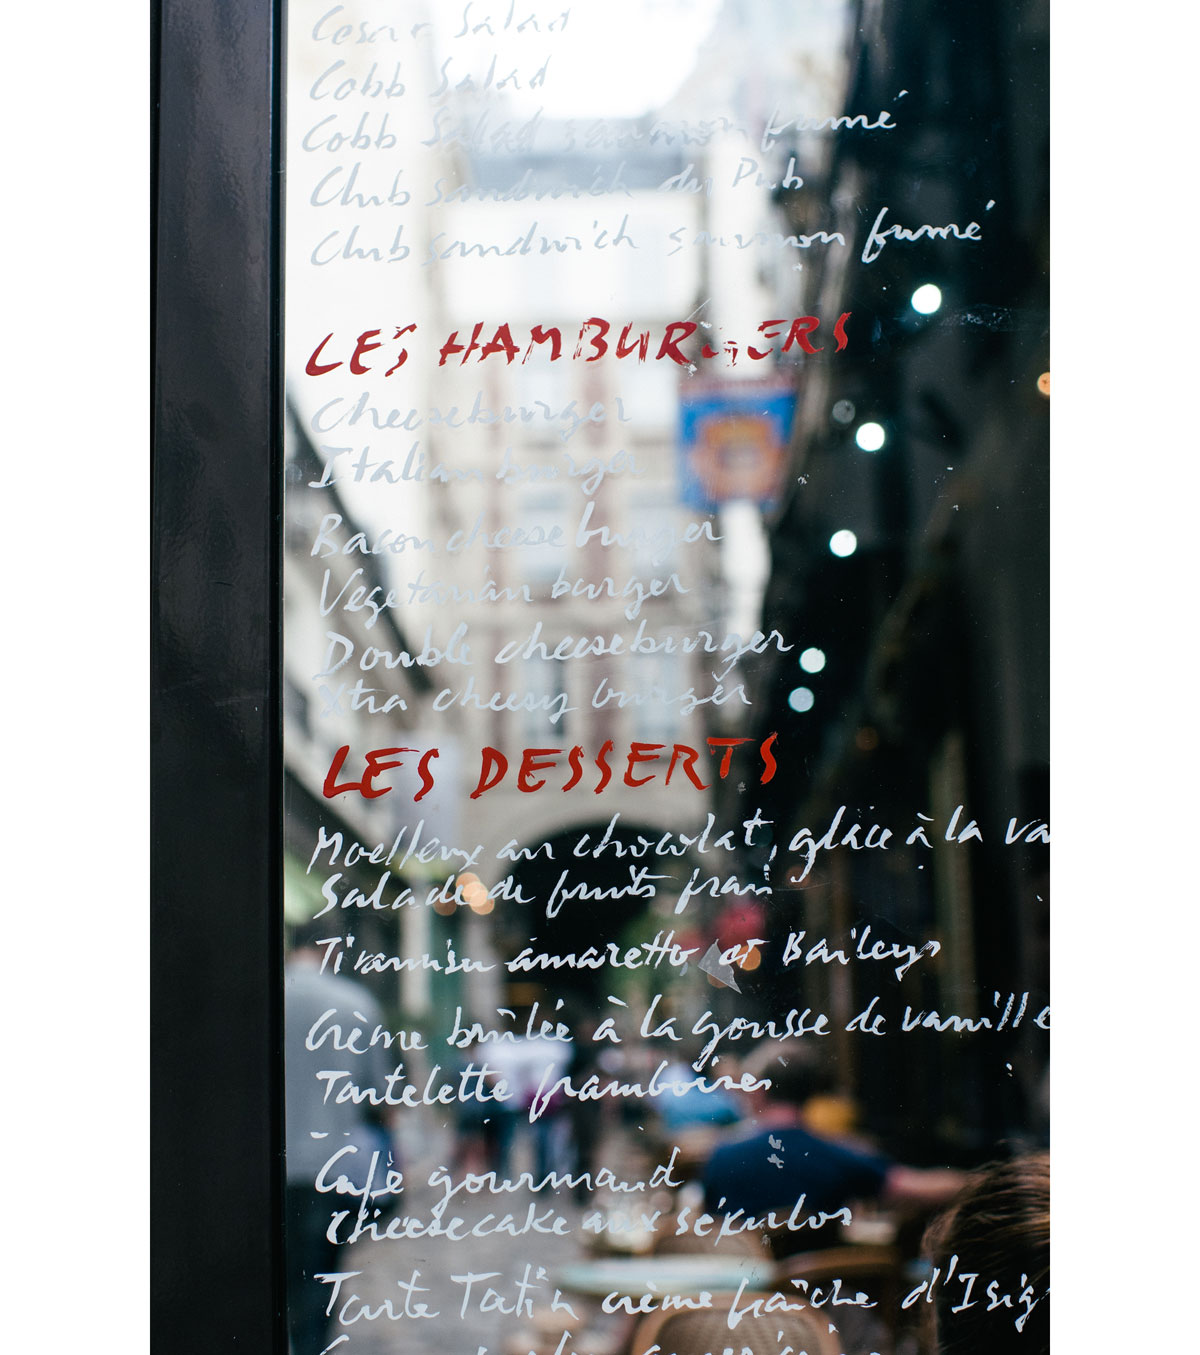 Cesar Salad
Cobb Salad
Cobb Salad saumon fumé
Club sandwich du Pub
Club sandwich saumon fumé
LES HAMBURGERS
Cheeseburger
Italian burger
Bacon cheese burger
Vegetarian burger
Double cheeseburger
Xtra cheesy burger
LES DESSERTS
Moelleux au chocolat, glace à la va
Salade de fruits frais
Tiramisu amaretto et Baileys
Crème brûlée à la gousse de vanille
Tartelette framboises
Café gourmand
Cheesecake aux spéculos
Tarte Tatin crème fraîche d'Isig